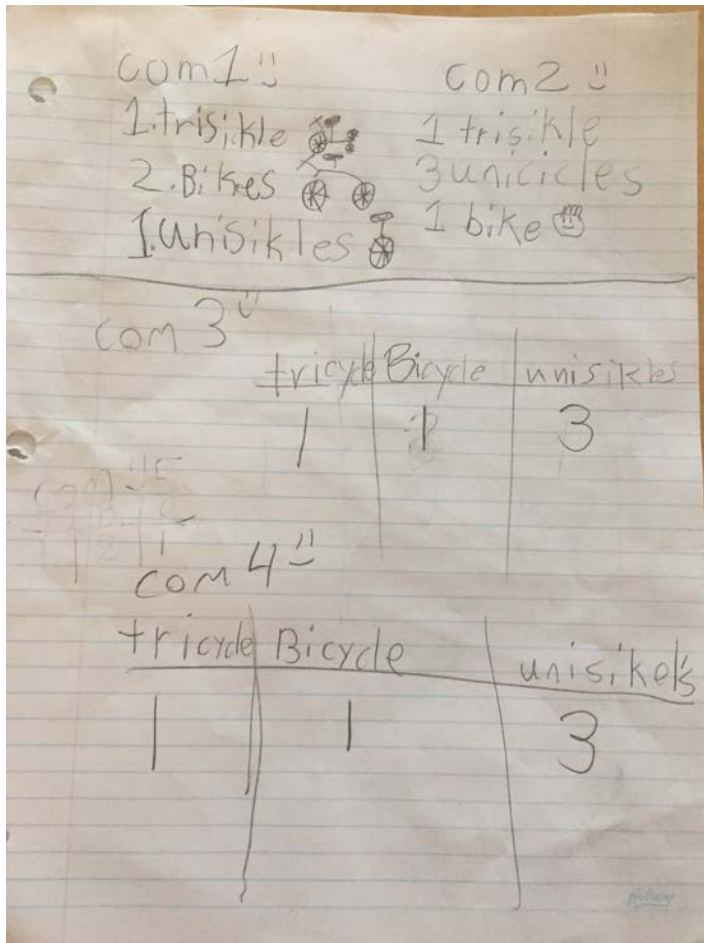 com1
1.trisikle
2.Bikes
1.unisikles
com2
1 trisikle
3 unicicles
1 bike
com 3
tricycle Bicycle unisikles
1 1 3
com 4
tricycle Bicycle unisikel's
1 1 3